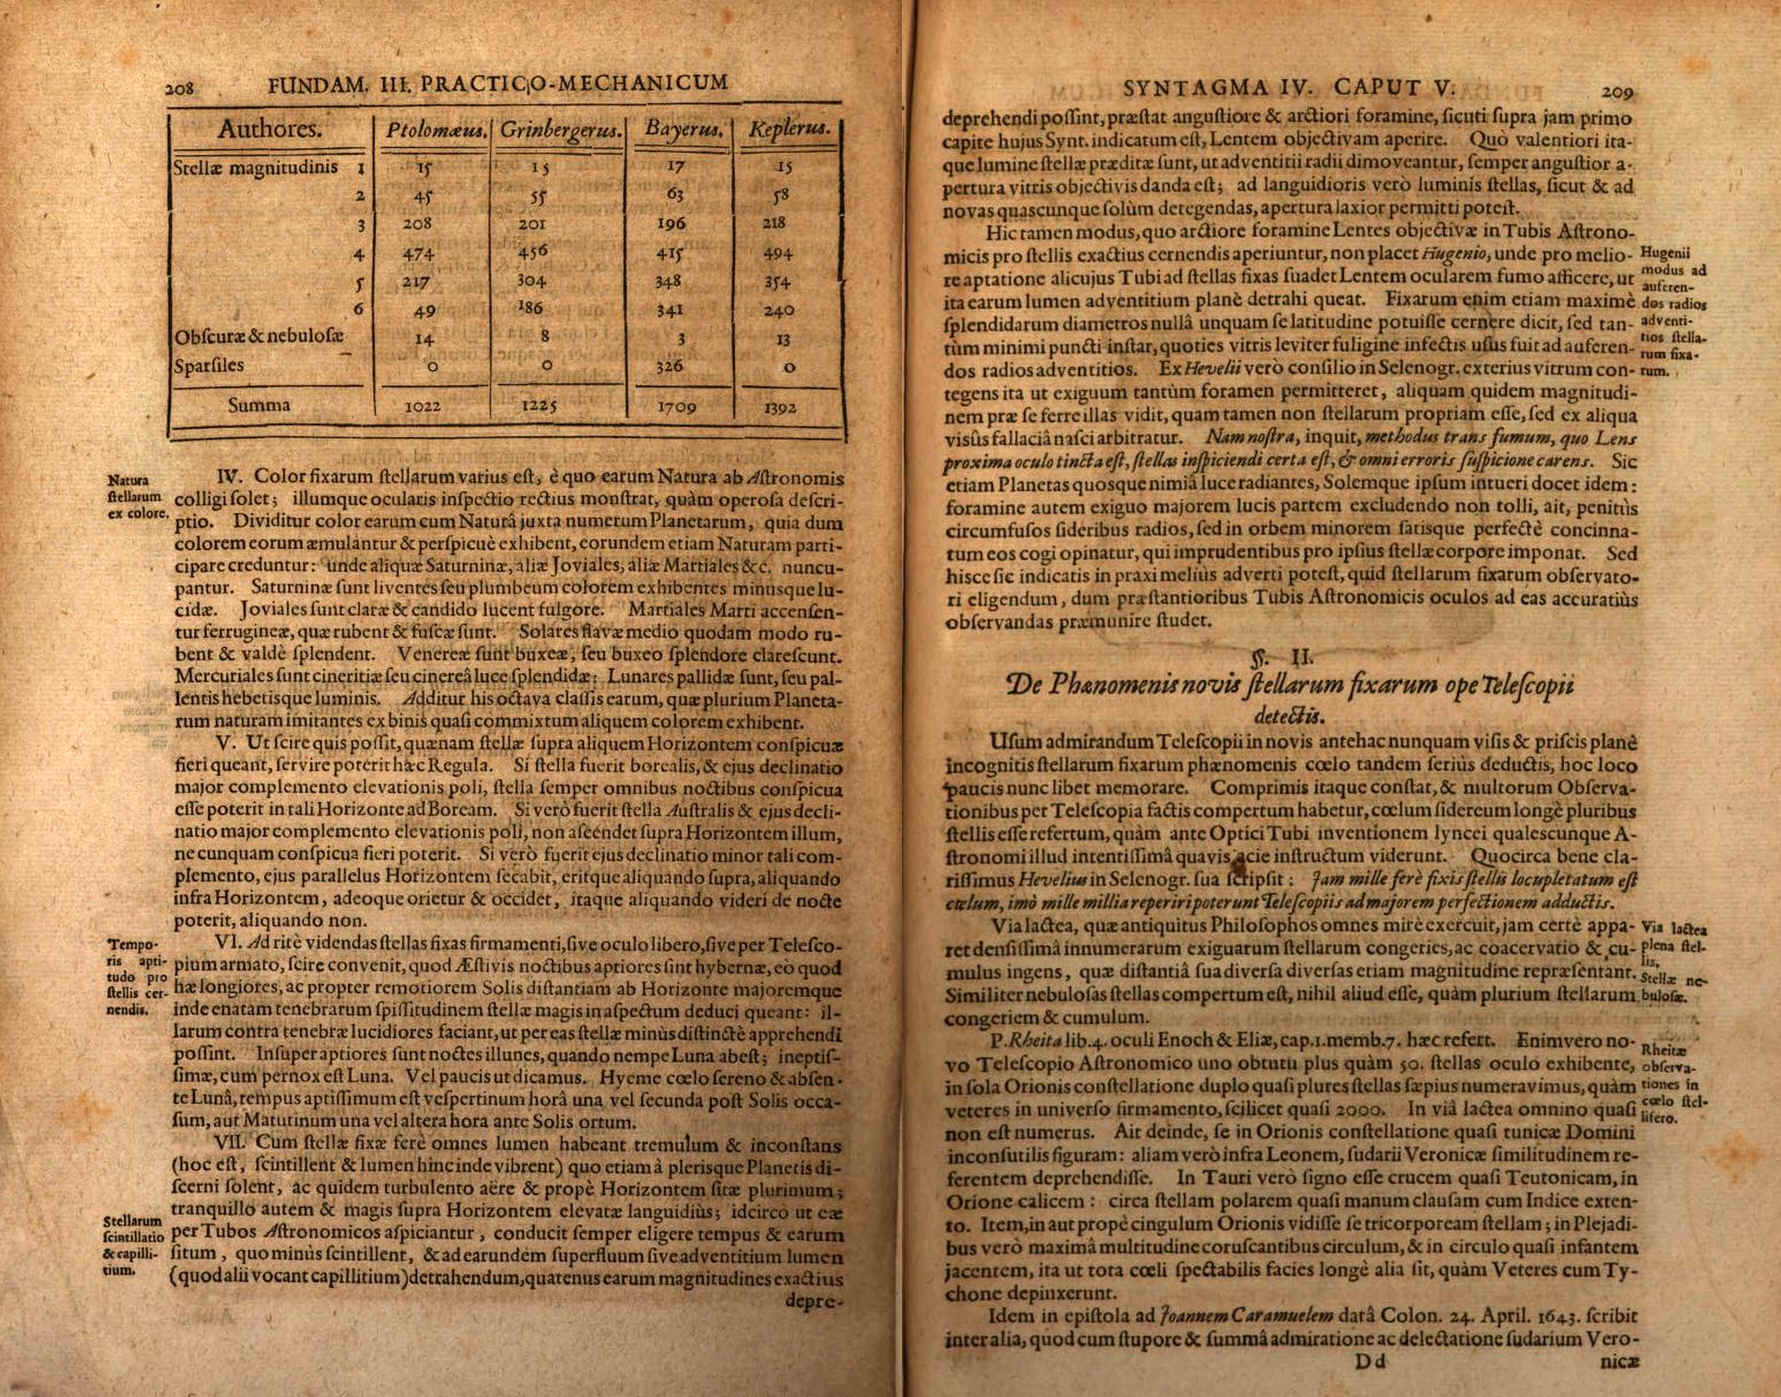 208 FUNDAM. III. PRACTICO-MECHANICUM
Authores. Ptolomæus. Grinbergerus. Bayerus. Keplerus.
Stellæ magnitudinis 1 15 15 17 15
2 45 55 63 58
3 208 201 196 218
4 474 456 415 494
5 217 304 348 354
6 49 186 341 240
Obſcuræ & nebuloſæ 14 8 3 13
Sparſiles 0 0 326 0
Summa 1022 1225 1709 1392
Natura
ſtellarum
ex colore.
IV. Color fixarum ſtellarum varius eſt, è quo earum Natura ab Aſtronomis
colligi ſolet; illumque ocularis inſpectio rectius monſtrat, quàm operoſa deſcri-
ptio. Dividitur color earum cum Naturâ juxta numerum Planetarum, quia dum
colorem eorum æmulantur & perſpicuè exhibent, eorundem etiam Naturam parti-
cipare creduntur: unde aliquæ Saturninæ, aliæ Joviales, aliæ Martiales &c. nuncu-
pantur. Saturninæ ſunt liventes ſeu plumbeum colorem exhibentes minusque lu-
cidæ. Joviales ſunt claræ & candido lucent fulgore. Martiales Marti accenſen-
tur ferrugineæ, quæ rubent & fuſcæ ſunt. Solares flavæ medio quodam modo ru-
bent & valdè ſplendent. Venereæ ſunt buxeæ, ſeu buxeo ſplendore clareſcunt.
Mercuriales ſunt cineritiæ ſeu cinereâ luce ſplendidæ; Lunares pallidæ ſunt, ſeu pal-
lentis hebetisque luminis. Additur his octava claſſis earum, quæ plurium Planeta-
rum naturam imitantes ex binis quaſi commixtum aliquem colorem exhibent.
V. Ut ſcire quis poſſit, quænam ſtellæ ſupra aliquem Horizontem conſpicuæ
fieri queant, ſervire poterit hæc Regula. Si ſtella fuerit borealis, & ejus declinatio
major complemento elevationis poli, ſtella ſemper omnibus noctibus conſpicua
eſſe poterit in tali Horizonte ad Boream. Si verò fuerit ſtella Auſtralis & ejus decli-
natio major complemento elevationis poli, non aſcendet ſupra Horizontem illum,
ne cunquam conſpicua fieri poterit. Si verò fuerit ejus declinatio minor tali com-
plemento, ejus parallelus Horizontem ſecabit, eritque aliquando ſupra, aliquando
infra Horizontem, adeoque orietur & occidet, itaque aliquando videri de nocte
poterit, aliquando non.
Tempo-
ris apti-
tudo pro
ſtellis cer-
nendis.
VI. Ad ritè videndas ſtellas fixas firmamenti, ſive oculo libero, ſive per Teleſco-
pium armato, ſcire convenit, quod Æſtivis noctibus aptiores ſint hybernæ, eò quod
hæ longiores, ac propter remotiorem Solis diſtantiam ab Horizonte majoremque
inde enatam tenebrarum ſpiſſitudinem ſtellæ magis in aſpectum deduci queant: il-
larum contra tenebræ lucidiores faciant, ut per eas ſtellæ minùs diſtinctè apprehendi
poſſint. Inſuper aptiores ſunt noctes illunes, quando nempe Luna abeſt; ineptiſ-
ſimæ, cùm pernox eſt Luna. Vel paucis ut dicamus. Hyeme cœlo ſereno & abſen-
te Lunâ, tempus aptiſſimum eſt veſpertinum horâ una vel ſecunda poſt Solis occa-
ſum, aut Matutinum una vel altera hora ante Solis ortum.
Stellarum
ſcintillatio
& capilli-
tium.
VII. Cum ſtellæ fixæ ferè omnes lumen habeant tremulum & inconſtans
(hoc eſt, ſcintillent & lumen hinc inde vibrent) quo etiam à plerisque Planetis di-
ſcerni ſolent, ac quidem turbulento aëre & propè Horizontem ſitæ plurimum;
tranquillo autem & magis ſupra Horizontem elevatæ languidiùs; idcirco ut eæ
per Tubos Aſtronomicos aſpiciantur, conducit ſemper eligere tempus & earum
ſitum, quo minùs ſcintillent, & ad earundem ſuperfluum ſive adventitium lumen
(quod alii vocant capillitium) detrahendum, quatenus earum magnitudines exactius
depre-
SYNTAGMA IV. CAPUT V. 209
deprehendi poſſint, præſtat anguſtiore & arctiori foramine, ſicuti ſupra jam primo
capite hujus Synt. indicatum eſt, Lentem objectivam aperire. Quò valentiori ita-
que lumine ſtellæ præditæ ſunt, ut adventitii radii dimoveantur, ſemper anguſtior a-
pertura vitris objectivis danda eſt; ad languidioris verò luminis ſtellas, ſicut & ad
novas quascunque ſolùm detegendas, apertura laxior permitti poteſt.
Hic tamen modus, quo arctiore foramine Lentes objectivæ in Tubis Aſtrono-
micis pro ſtellis exactius cernendis aperiuntur, non placet Hugenio, unde pro melio-
re aptatione alicujus Tubi ad ſtellas fixas ſuadet Lentem ocularem fumo afficere, ut
ita earum lumen adventitium planè detrahi queat. Fixarum enim etiam maximè
ſplendidarum diametros nullâ unquam ſe latitudine potuiſſe cernere dicit, ſed tan-
tùm minimi puncti inſtar, quoties vitris leviter fuligine infectis uſus fuit ad auferen-
dos radios adventitios. Ex Hevelii verò conſilio in Selenogr. exterius vitrum con-
tegens ita ut exiguum tantùm foramen permitteret, aliquam quidem magnitudi-
nem præ ſe ferre illas vidit, quam tamen non ſtellarum propriam eſſe, ſed ex aliqua
viſûs fallaciâ naſci arbitratur. Nam noſtra, inquit, methodus trans fumum, quo Lens
proxima oculo tincta eſt, ſtellas inſpiciendi certa eſt, & omni erroris ſuſpicione carens. Sic
etiam Planetas quosque nimiâ luce radiantes, Solemque ipſum intueri docet idem:
foramine autem exiguo majorem lucis partem excludendo non tolli, ait, penitùs
circumfuſos ſideribus radios, ſed in orbem minorem ſatisque perfectè concinna-
tum eos cogi opinatur, qui imprudentibus pro ipſius ſtellæ corpore imponat. Sed
hisce ſic indicatis in praxi meliùs adverti poteſt, quid ſtellarum fixarum obſervato-
ri eligendum, dum præſtantioribus Tubis Aſtronomicis oculos ad eas accuratiùs
obſervandas præmunire ſtudet.
Hugenii
modus ad
auferen-
dos radios
adventi-
tios ſtella-
rum fixa-
rum.
§. II.
De Phænomenis novis ſtellarum fixarum ope Teleſcopii
detectis.
Uſum admirandum Teleſcopii in novis antehac nunquam viſis & priſcis planè
incognitis ſtellarum fixarum phænomenis cœlo tandem ſeriùs deductis, hoc loco
paucis nunc libet memorare. Comprimis itaque conſtat, & multorum Obſerva-
tionibus per Teleſcopia factis compertum habetur, cœlum ſidereum longè pluribus
ſtellis eſſe refertum, quàm ante Optici Tubi inventionem lyncei qualescunque A-
ſtronomi illud intentiſſimâ quavis acie inſtructum viderunt. Quocirca bene cla-
riſſimus Hevelius in Selenogr. ſua ſcripſit: Jam mille ferè fixis ſtellis locupletatum eſt
cœlum, imò mille millia reperiri poterunt Teleſcopiis ad majorem perfectionem adductis.
Via lactea, quæ antiquitus Philoſophos omnes mirè exercuit, jam certè appa-
ret denſiſſimâ innumerarum exiguarum ſtellarum congeries, ac coacervatio & cu-
mulus ingens, quæ diſtantiâ ſua diverſa diverſas etiam magnitudine repræſentant.
Similiter nebuloſas ſtellas compertum eſt, nihil aliud eſſe, quàm plurium ſtellarum
congeriem & cumulum.
Via lactea
plena ſtel-
lis.
Stellæ ne-
buloſæ.
P. Rheita lib. 4. oculi Enoch & Eliæ, cap. 1. memb. 7. hæc refert. Enimvero no-
vo Teleſcopio Aſtronomico uno obtutu plus quàm 50. ſtellas oculo exhibente,
in ſola Orionis conſtellatione duplo quaſi plures ſtellas ſæpius numeravimus, quàm
veteres in univerſo firmamento, ſcilicet quaſi 2000. In viâ lactea omnino quaſi
non eſt numerus. Ait deinde, ſe in Orionis conſtellatione quaſi tunicæ Domini
inconſutilis figuram: aliam verò infra Leonem, ſudarii Veronicæ ſimilitudinem re-
ferentem deprehendiſſe. In Tauri verò ſigno eſſe crucem quaſi Teutonicam, in
Orione calicem: circa ſtellam polarem quaſi manum clauſam cum Indice exten-
to. Item, in aut propè cingulum Orionis vidiſſe ſe tricorpoream ſtellam; in Plejadi-
bus verò maximâ multitudine coruſcantibus circulum, & in circulo quaſi infantem
jacentem, ita ut tota cœli ſpectabilis facies longè alia ſit, quàm Veteres cum Ty-
chone depinxerunt.
Rheitæ
obſerva-
tiones in
cœlo ſtel-
lifero.
Idem in epiſtola ad Joannem Caramuelem datâ Colon. 24. April. 1643. ſcribit
inter alia, quod cum ſtupore & ſummâ admiratione ac delectatione ſudarium Vero-
Dd nicæ